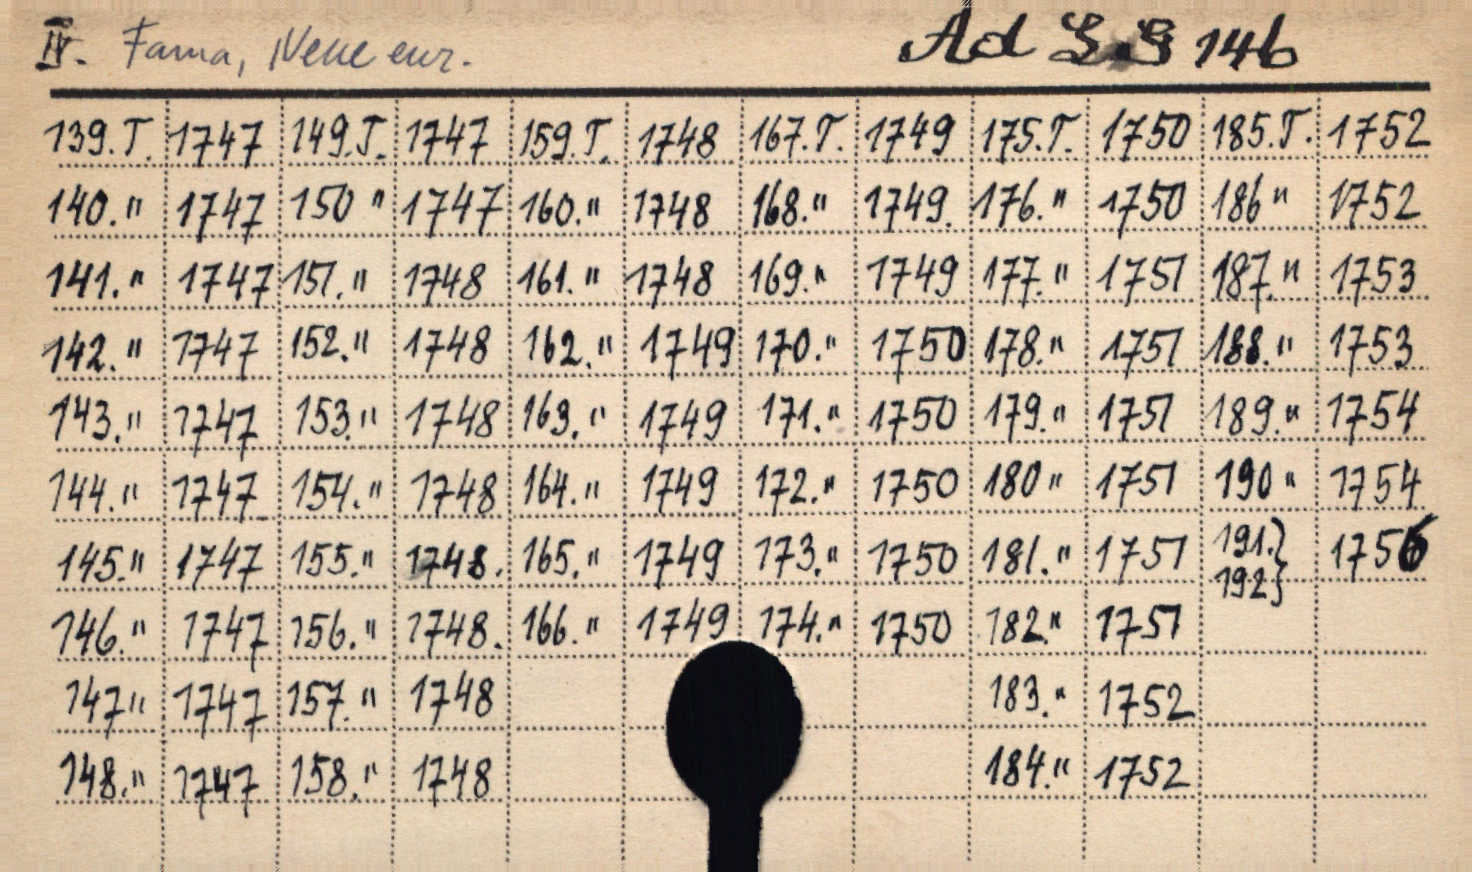 IV. Fama, Neue eur. Ad LG 146
139.T. 1747 149.T. 1747 159.T. 1748 167.T. 1749 175.T. 1750 185.T. 1752
140." 1747 150 " 1747 160." 1748 168." 1749. 176." 1750 186 " 1752
141." 1747 151." 1748 161." 1748 169." 1749 177." 1751 187." 1753
142." 1747 152." 1748 162." 1749 170." 1750 178." 1751 188." 1753
143." 1747 153." 1748 163." 1749 171." 1750 179." 1751 189." 1754
144." 1747 154." 1748 164." 1749 172." 1750 180 " 1751 190 " 1754
145." 1747 155." 1748. 165." 1749 173." 1750 181." 1751 191.} 1756
192}
146." 1747 156." 1748. 166." 1749 174." 1750 182." 1751
147 " 1747 157." 1748 183." 1752
148." 1747 158." 1748 184." 1752